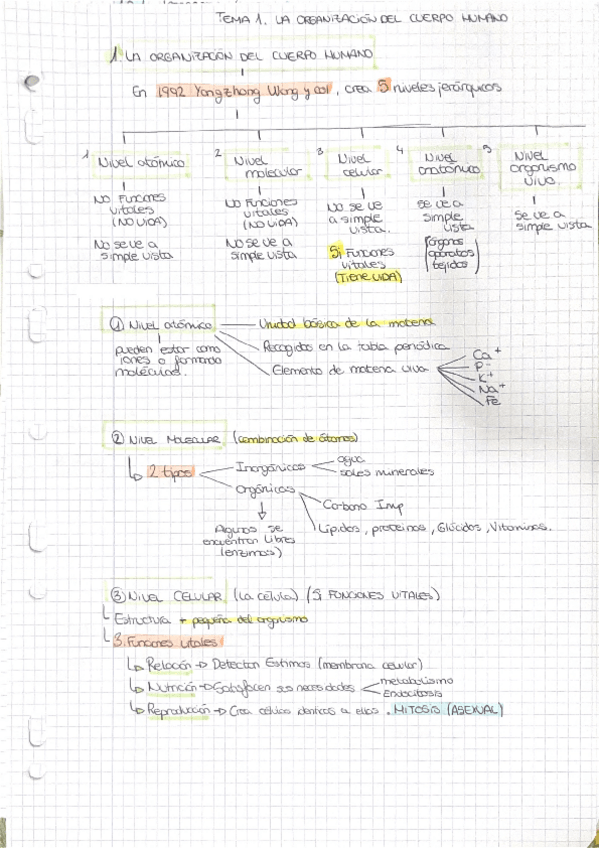 TEMA 1. LA ORGANIZACIÓN DEL CUERPO HUMANO
1. LA ORGANIZACIÓN DEL CUERPO HUMANO
En 1992 Yangzhong Wang y col, crea 5 niveles jerárquicos
1 Nivel atómico
NO Funciones vitales (NO VIDA)
No se ve a simple vista
2 Nivel molecular
NO Funciones vitales (NO VIDA)
No se ve a simple vista
3 Nivel celular
No se ve a simple vista.
Sí Funciones vitales (TIENE VIDA)
4 Nivel anatómico
Se ve a simple vista
(órganos aparatos tejidos)
5 Nivel organismo vivo.
Se ve a simple vista
① Nivel atómico
Unidad básica de la materia
Recogidos en la tabla periódica
Elemento de materia viva
Ca+
P-
K+
Na+
Fe
pueden estar como iones o formando moléculas.
② NIVEL MOLECULAR (combinación de átomos)
2 tipos
Inorgánicos
agua
sales minerales
Orgánicos
Carbono Imp
Lípidos, proteínas, Glúcidos, Vitaminas.
Algunos se encuentran libres (enzimas)
③ NIVEL CELULAR (La célula) (Sí FUNCIONES VITALES)
Estructura + pequeña del organismo
3 Funciones vitales
Relación → Detectan Estímos (membrana celular)
Nutrición → Satisfacen sus necesidades
metabolismo
Endocitosis
Reproducción → Crea células idénticas a ellas. MITOSIS (ASEXUAL)